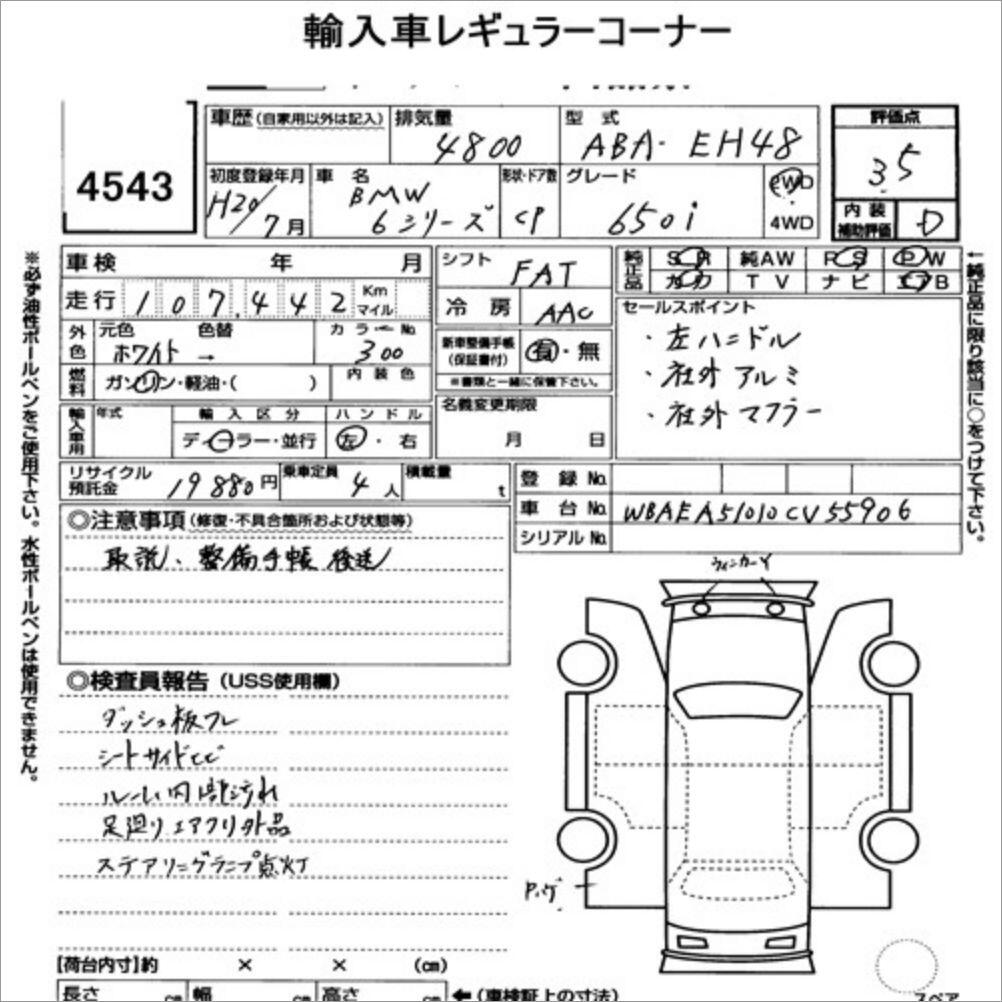 輸入車レギュラーコーナー
4543
車歴 (自家用以外は記入) 排気量 4800 型式 ABA-EH48
評価点 3.5
初度登録年月 H20/7月 車名 BMW 6シリーズ 形状・ドア数 CP グレード 650i 2WD 4WD
内装補助評価 D
車検 年 月
走行 107,442 Km マイル
シフト FAT
冷房 AAC
純正品 SR 純AW PS PW
カワ TV ナビ エアB
外色 元色 ホワイト 色替 → カラーNo. 300
燃料 ガソリン・軽油・( ) 内装色
新車整備手帳(保証書付) 有・無
※書類と一緒に保管下さい。
セールスポイント
・左ハンドル
・社外アルミ
・社外マフラー
輸入車用 年式 輸入区分 ディーラー・並行 ハンドル 左・右
名義変更期限 月 日
リサイクル預託金 19880円 乗車定員 4人 積載量 t
登録No.
車台No. WBAEA51010CV55906
シリアルNo.
◎注意事項(修復・不具合箇所および状態等)
取説、整備手帳後送
◎検査員報告(USS使用欄)
ダッシュ板フレ
シートサイド
ルーム内部汚れ
足廻りエアクリ外品
ステアリングランプ点灯
ウィンカーY
P、ゲ
[荷台内寸]約 × × (cm)
長さ cm 幅 cm 高さ cm ←(車検証上の寸法)
スペア
※必ず油性ボールペンをご使用下さい。水性ボールペンは使用できません。
←純正品に限り該当に○をつけて下さい。